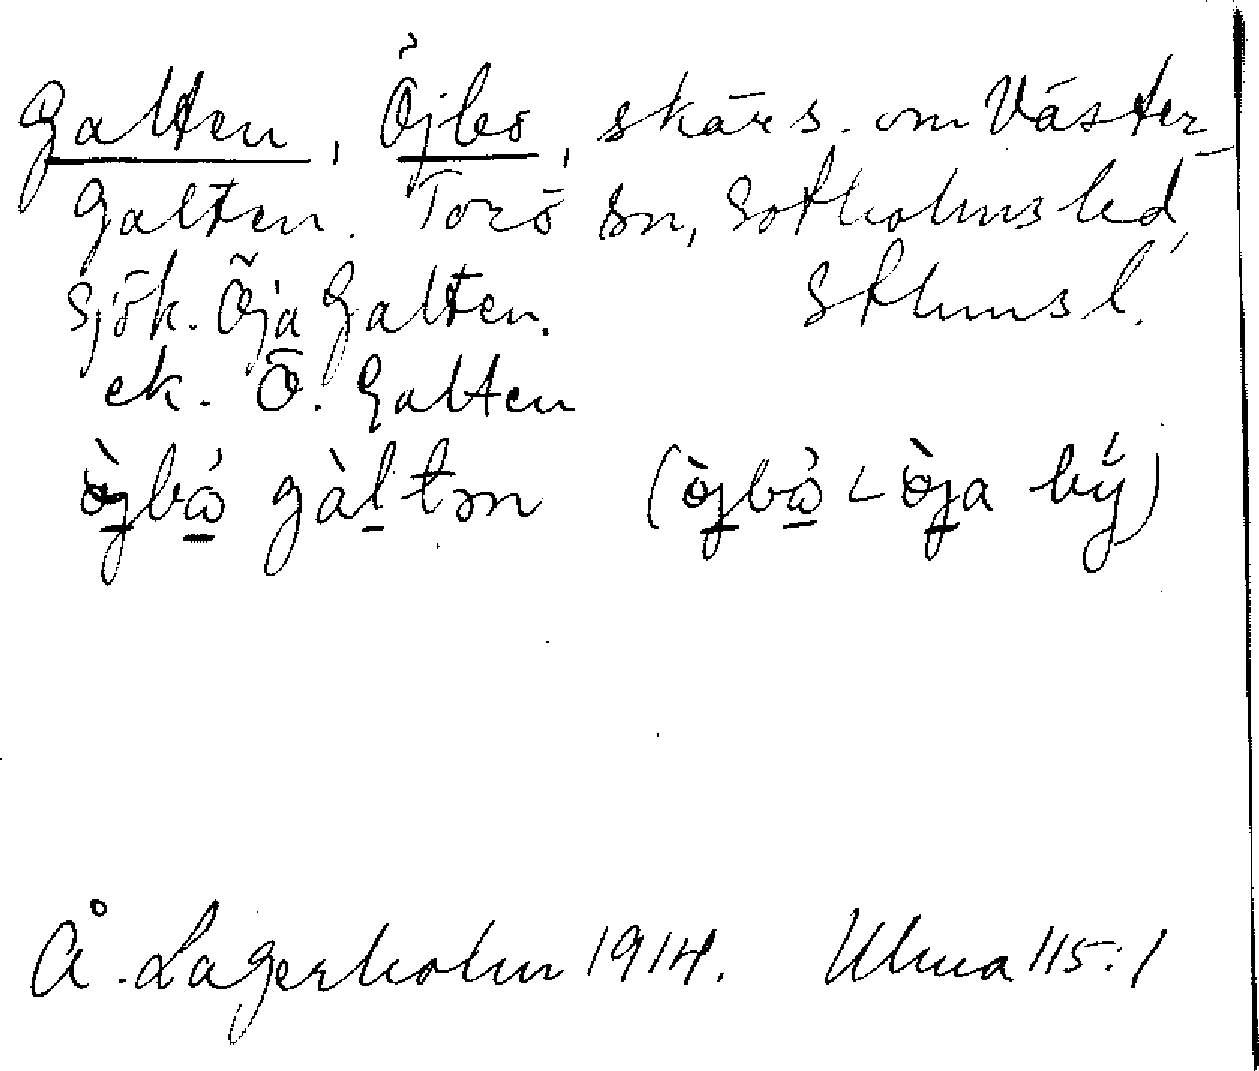 Galten, Öjbo, skär s. om Väster-
Galten. Torö sn, Sotholms hd,
sjök. Öja Galten. Sthms l.
ek. Ö. Galten
ò̈jbω̇ gàltən (ò̈jbω̇ < ò̈ja bý)
Å. Lagerholm 1914. Uluma 115:1